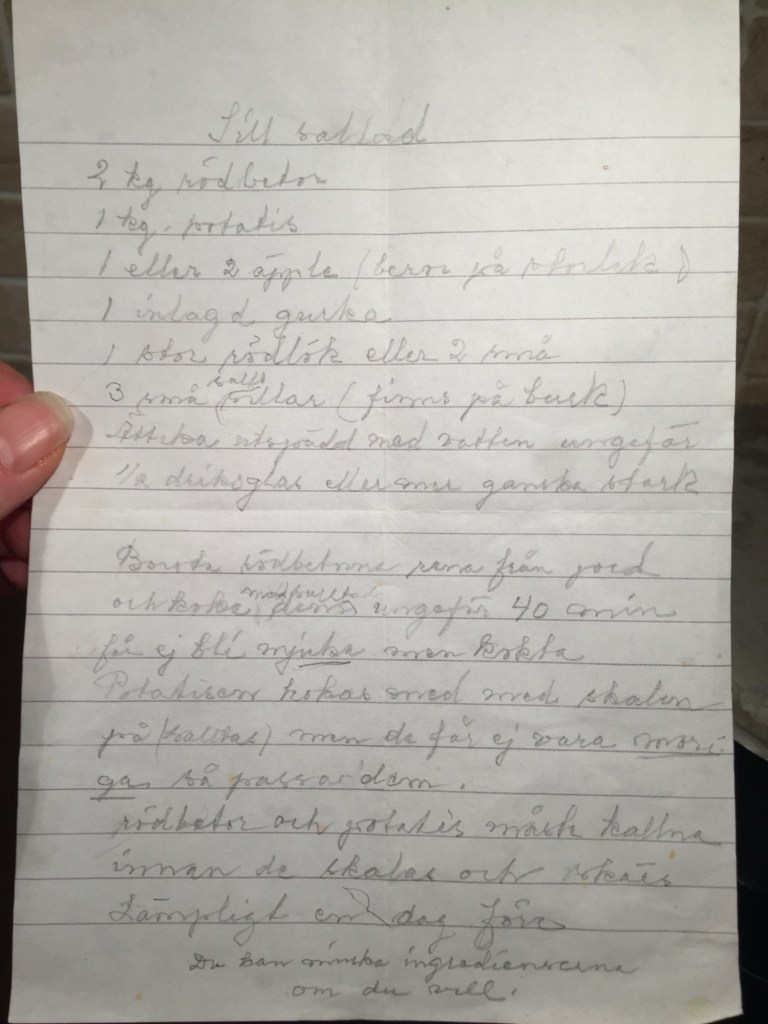 Sill sallad
2 kg rödbetor
1 kg. potatis
1 eller 2 äpple (beror på storlek)
1 inlagd gurka
1 stor rödlök eller 2 små
3 små salt sillar (finns på burk)
Ättika utspädd med vatten ungefär
1/2 driksglas eller mer ganska stark
Borsta rödbetorna rena från jord
och koka dem ungefär 40 min
får ej bli mjuka men kokta
Potatisen kokas med med skalen
på (saltas) men de får ej vara mosi-
ga så passa dem.
rödbetor och potatis måste kallna
innan de skalas och
Lämpligt en dag före
Du kan minska ingredienserna
om du vill.